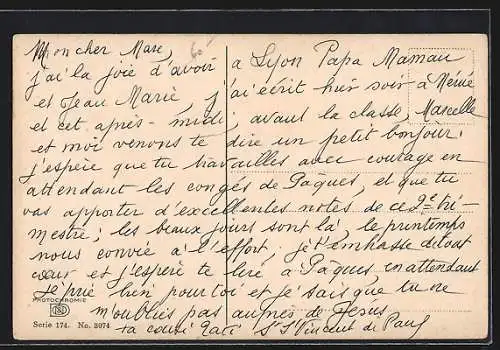 Mon cher Marc, 60
j'ai la joie d'avoir à Lyon Papa Maman
et Jean Marie, j'ai écrit hier soir à Mémé
et cet après-midi, avant la classe, Marcelle
et moi venons te dire un petit bonjour.
j'espère que tu travailles avec courage en
attendant les congés de Pâques, et que tu
vas apporter d'excellentes notes de ce 2e tri-
mestre; les beaux jours sont là, le printemps
nous convie à l'effort. je t'embrasse de tout
cœur et j'espère te lire, à Pâques en attendant
je prie bien pour toi et je sais que tu ne
m'oublies pas auprès de Jésus
ta cousi St Vincent de Paul
PHOTOCHROMIE
Serie 174. No. 3974